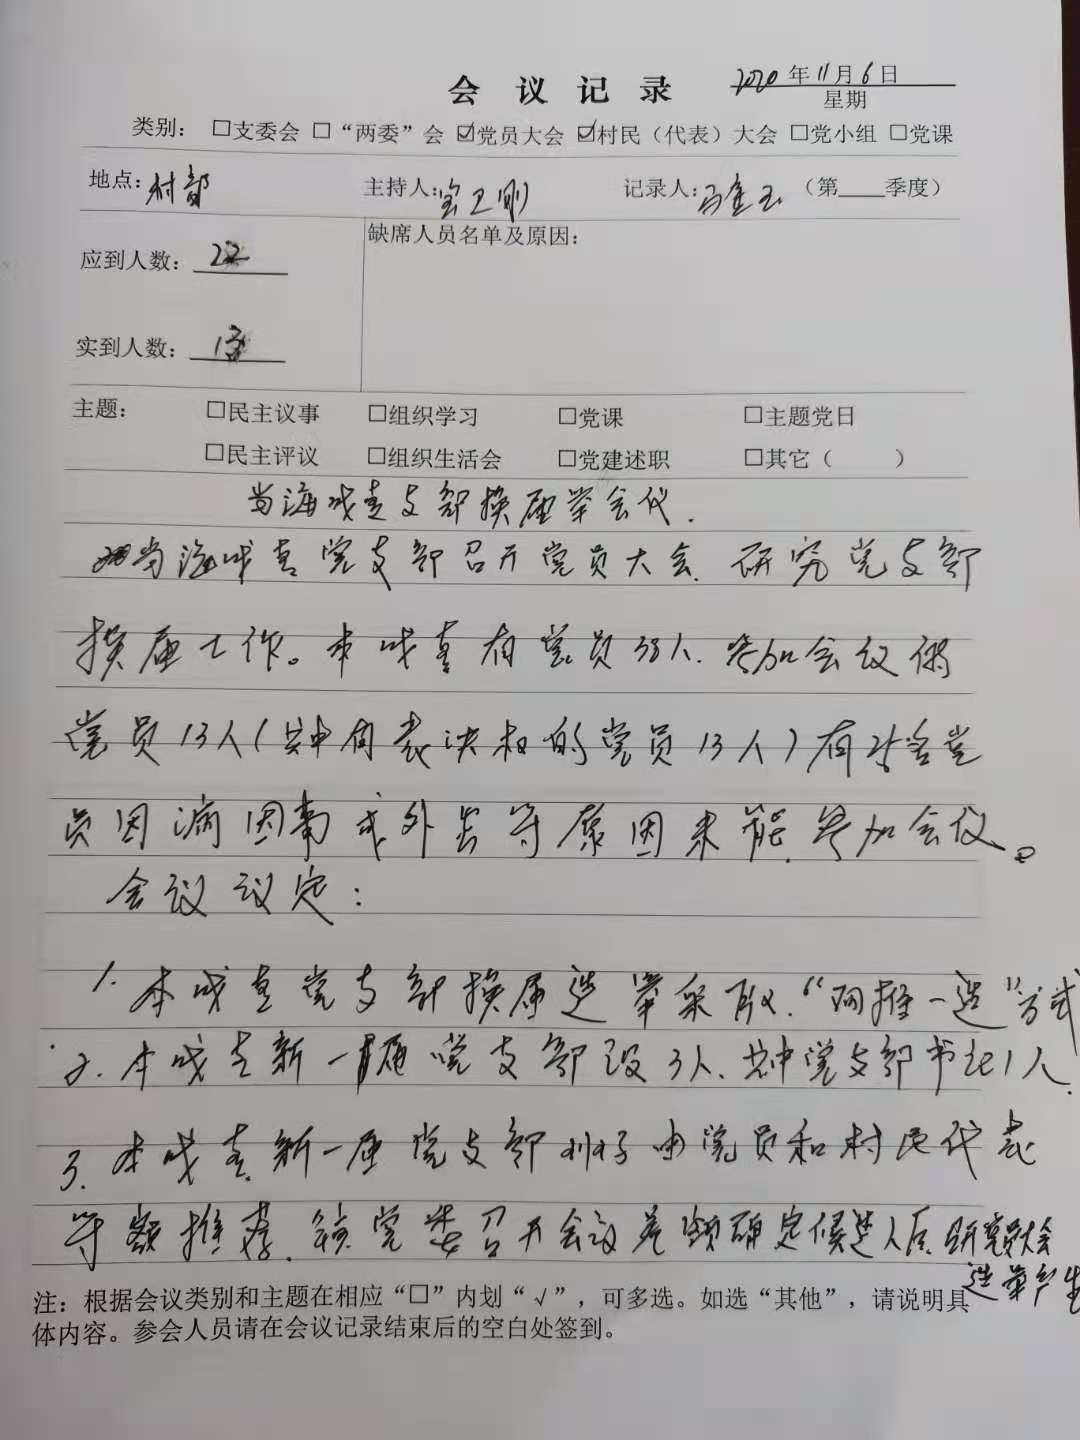 会 议 记 录
2020年11月6日
星期
类别：□支委会 □“两委”会 ☑党员大会 ☑村民（代表）大会 □党小组 □党课
地点：村部 主持人：宝卫刚 记录人： （第 季度）
应到人数： 缺席人员名单及原因：
实到人数：13
主题： □民主议事 □组织学习 □党课 □主题党日
□民主评议 □组织生活会 □党建述职 □其它（ ）
海 支部换届举会仪.
党支部召开党员大会.研究党支部
换届工作。本 有党员38人.参加会议的
党员13人（其中有表决权的党员13人）有25名党
员因病因事或外出等原因未能.参加会仪。
会议议定：
1.本 党支部换届选举采取.“两推一选”方式
2.本 新一届党支部设3人.其中党支部书记1人.
3.本 新一届党支部班子由党员和村民代表
等额推荐.镇党委召开会议差额确定候选人后.经党员大会
选举产生
注：根据会议类别和主题在相应“□”内划“√”，可多选。如选“其他”，请说明具
体内容。参会人员请在会议记录结束后的空白处签到。